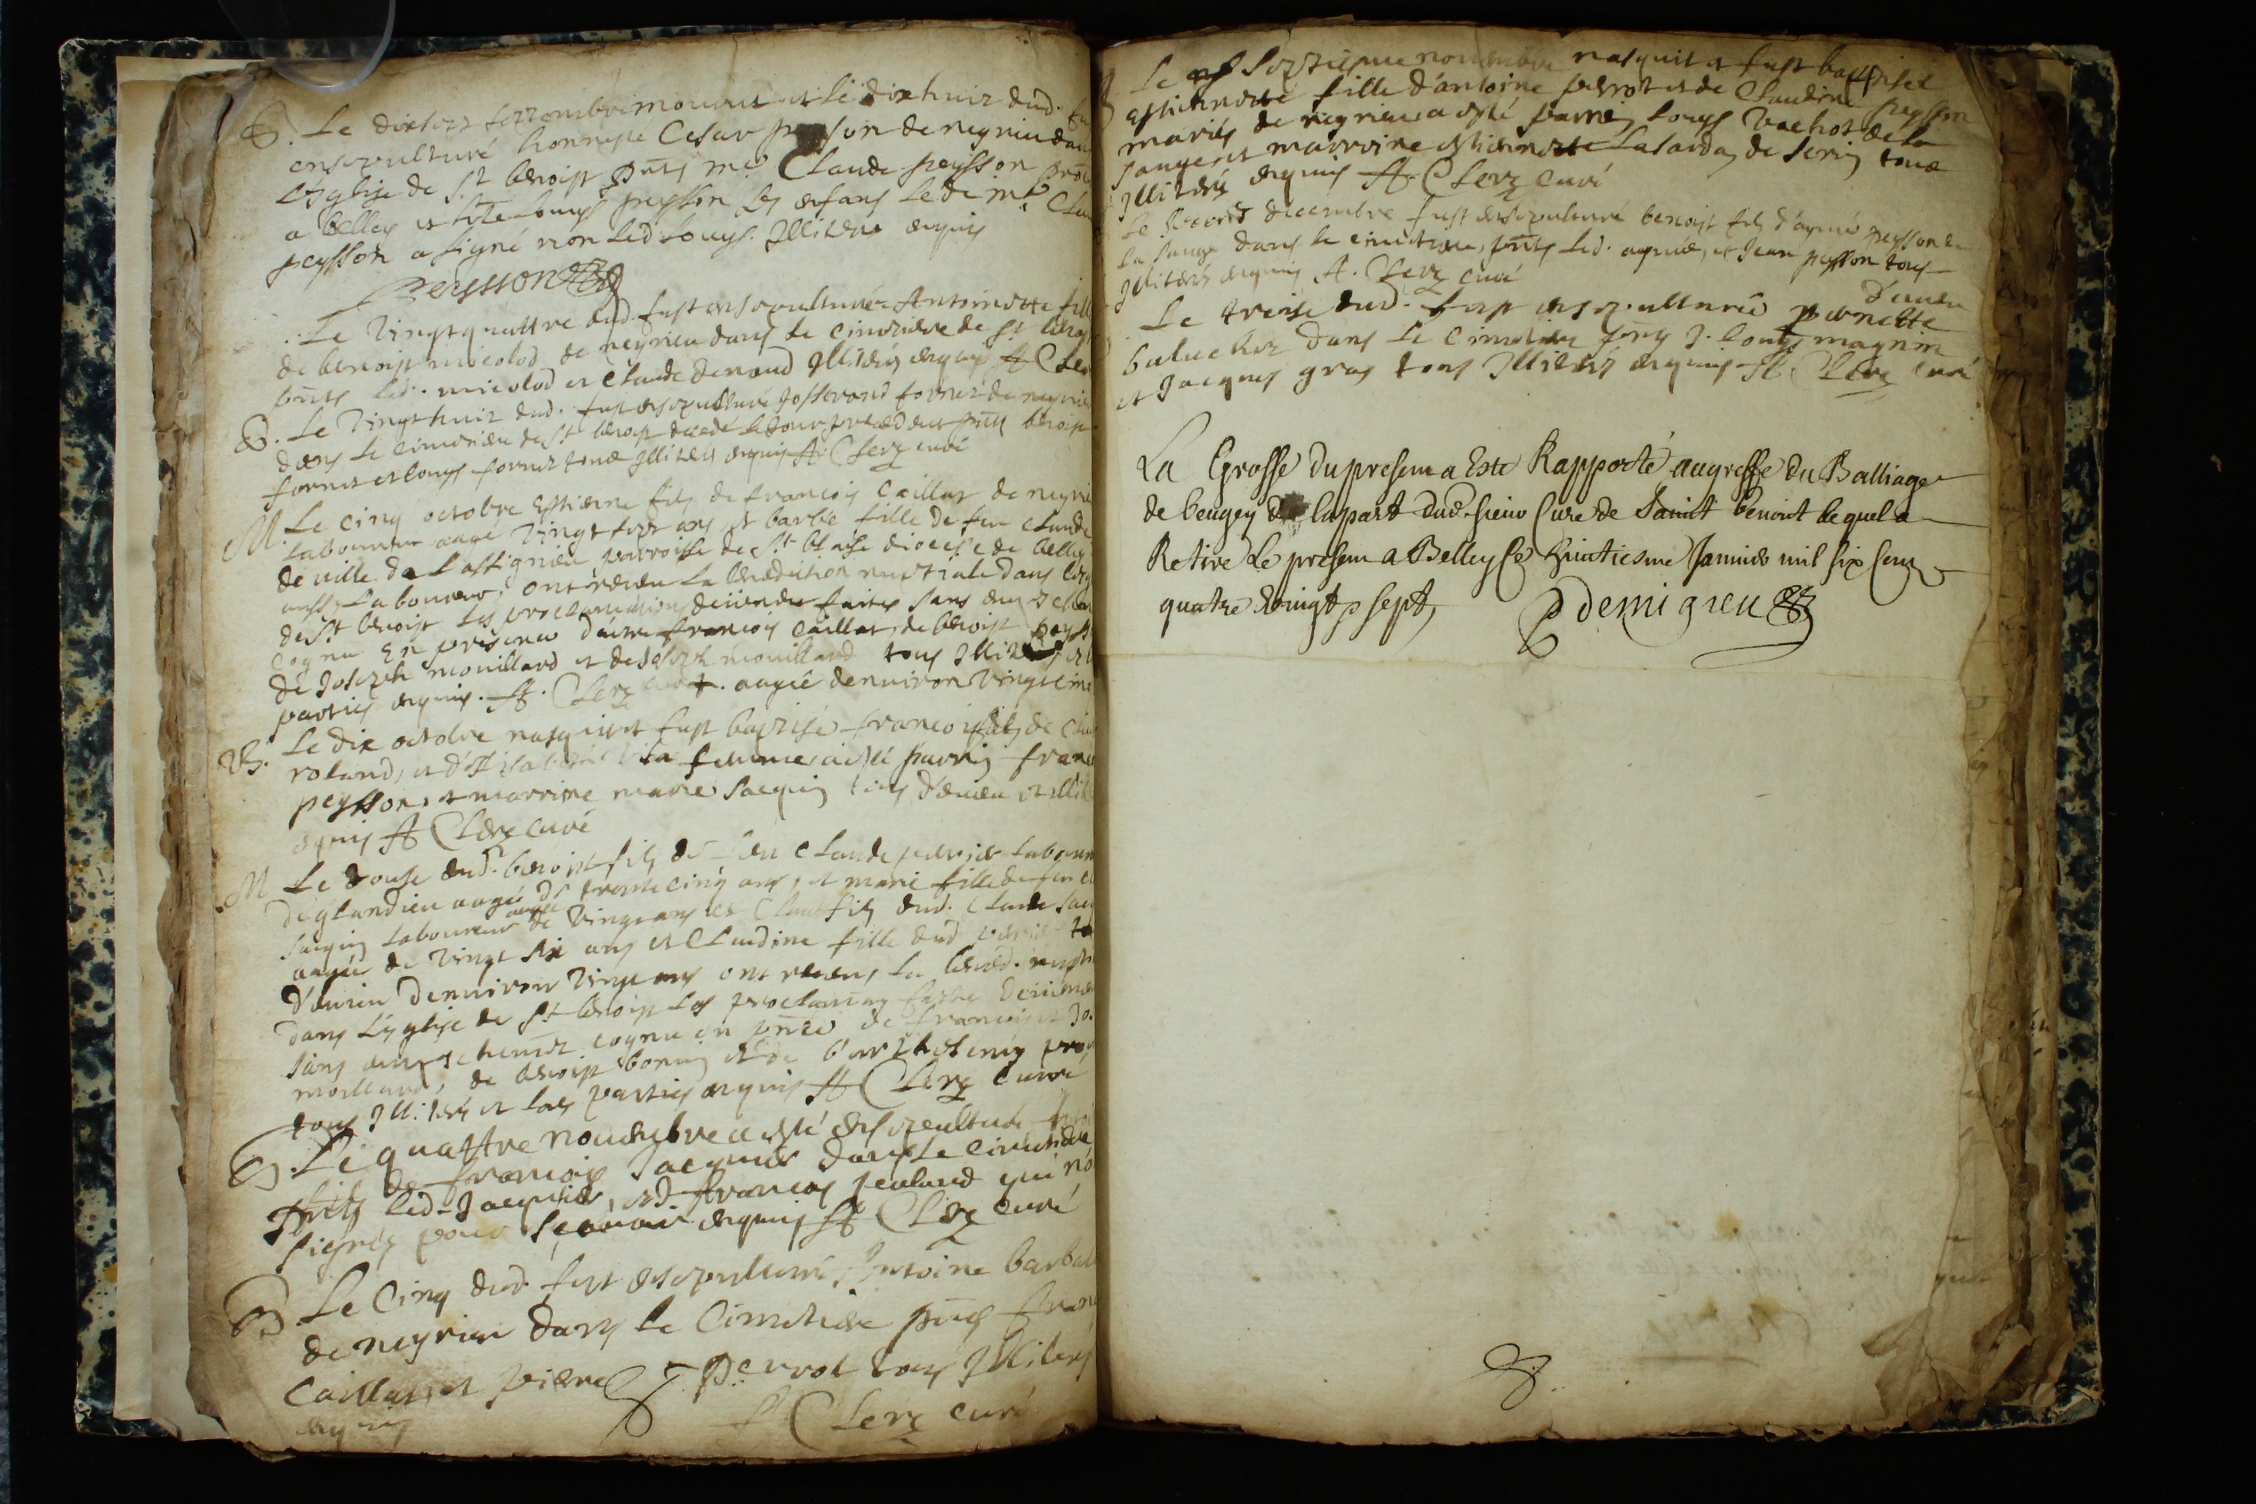 S. Le dixsept septembre mourut et le dixhuit dud. fu
ensepulturé honneste Cesar peysson de neyrieu dans
L'Eglise de St benoist pnts mre Claude peysson
a belley et louys peysson ses enfans led mre Clau
peysson a signé non led louys illiteré enquis
Peysson
Le vingt quattre dud. fust ensepulturée Antoinette fille
de benoist micolod de neyrieu dans le cimetiere de St benoist
pnts led. micolod et Claude illiterés enquis A Clerz
S. Le vingthuit dud. fust ensepulturé Josserand fornet de neyrieu
dans le cimetiere de St benoist decedé le jour precedent pnts benoist
fornet et louys fornet tous illiterés enquis A. Clerz curé
M. Le cinq octobre Estienne fils de francois Caillat de neyrieu
laboureur aagé vingt sept ans et barbe fille de feu Claude
de ville de Lassignieu parroisse de St blaise diocese de belley
aussy laboureur, ont receu la benediction nuptiale dans l'eg
de St benoist les proclamations deüement faites sans empeche
cognu En presence d'autre francois Caillat, de benoist
de Joseph mouillard et de Joseph mouillard tous illiterés et les
parties enquis. A. Clerz curé. aagée denviron vingt cinq
B. Le dix octobre nasquit et fust baptisé francois fils de Claude
roland, et d'Elisabeth sa femme, a esté parrin francois
peysson, et marrine marie Jacquin tous d'euieu illiterés
enquis A Clerz curé
M Le douse dud. benoist fils de feu Claude perrier laboureur
de glandieu aagé de trente cinq ans, et marie fille de feu Cl
Jacquin laboureur aagée de vingt ans et Claude fils dud. Claude Jacq
aagé de vingt six ans et Claudine fille dud perrier
d'euieu denviron vingt ans ont receus la bened. nupti
dans l'eglise de St benoist les proclamaõns faites deüement
sans empechement cognu en pñce de francois et Jos
mouillard, de benoist bonnin et de barthelemy
tous illiterés et les parties enquis A Clerz curé
S. Le quattre nouembre a esté ensepulturé
fils de francois Jacquier dans le cimetiere
pnts led. Jacquier, et francois qui n'o
signés pour scauoir enquis A Clerz curé
S. Le cinq dud. fust ensepulturé Antoine barbal
de neyrieu dans le cimetiere pnts fran
Caillat, et pierre Perrot tous illiterés
enquis A Clerz curé
Le septiesme nouembre nasquit et fust baptisée
Estiennette fille d'antoine perrot et de Claudine peysson
mariés de neyrieu a esté parrin Louys Vachot de la
sauge et marroine Estiennette Lasarda de Serin tous
illiterés enquis A. Clerz curé
Le second decembre fust ensepulturé benoist fils d'aymé peysson de
la sauge dans le cimetiere, pnts led. aymé, et Jean peysson tous
illiterés enquis A. Clerz curé
Le treise dud. fust ensepulturée pernette d'euieu
baluchet dans le cimetiere pnts J. louys magnin
et Jacques gras tous illiterés enquis A. Clerz curé
La Grosse du present a Este Rapporté augreffe du Balliage
de beugey de la part dud. sieur Curé de Saint benoit lequel a
Retiré Le present a Belley ce huictiesme Januier mil six Cent
quatre Vingt sept,
demigieu